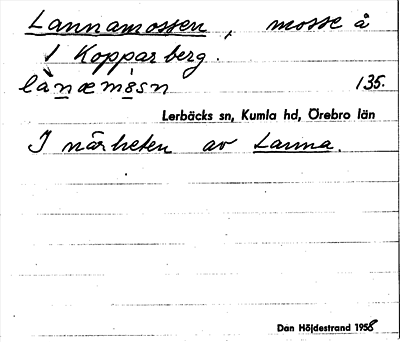 Lannamossen, mosse å
1 Kopparberg.
lànæmåsn 135.
Lerbäcks sn, Kumla hd, Örebro län
I närheten av Lanna.
Dan Höjdestrand 1958